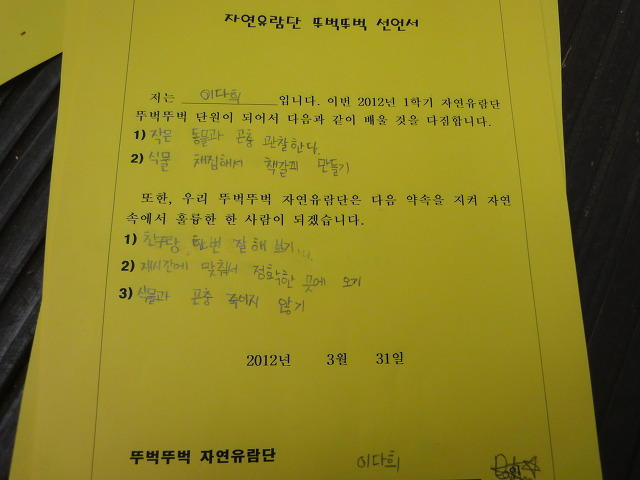 자연유람단 뚜벅뚜벅 선언서
저는 이다희 입니다. 이번 2012년 1학기 자연유람단
뚜벅뚜벅 단원이 되어서 다음과 같이 배울 것을 다짐합니다.
1) 작은 동물과 곤충 관찰한다.
2) 식물 채집해서 책갈피 만들기
또한, 우리 뚜벅뚜벅 자연유람단은 다음 약속을 지켜 자연
속에서 훌륭한 한 사람이 되겠습니다.
1) 친구랑 한번 잘해
2) 제시간에 맞춰서 정확한 곳에 오기
3) 식물과 곤충 죽이지 않기
2012년 3월 31일
뚜벅뚜벅 자연유람단 이다희